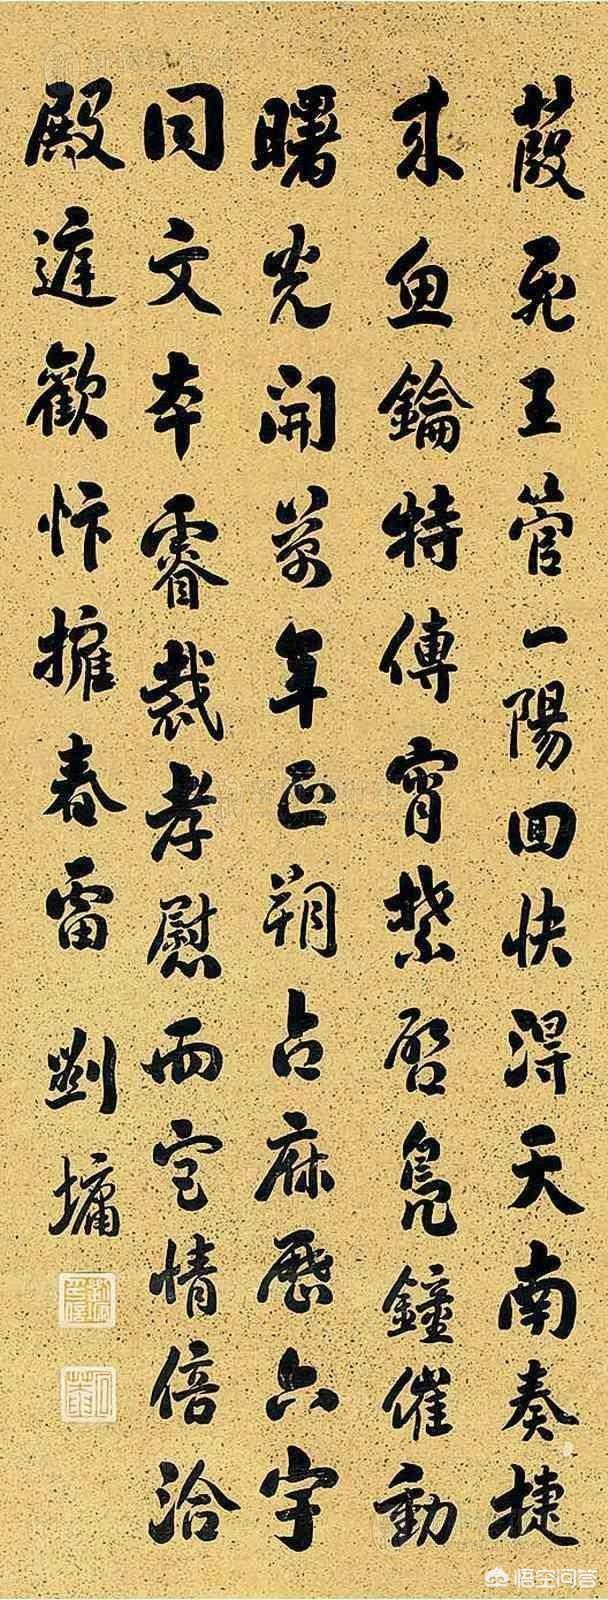 葭飛玉管一陽回快得天南奏捷
來魚鑰特傳宵禁啓鳧鐘催動
曙光開萬年正朔占庥歷六宇
同文本睿裁孝慰兩宮情倍洽
殿庭歡忭擁春雷 劉墉
悟空问答